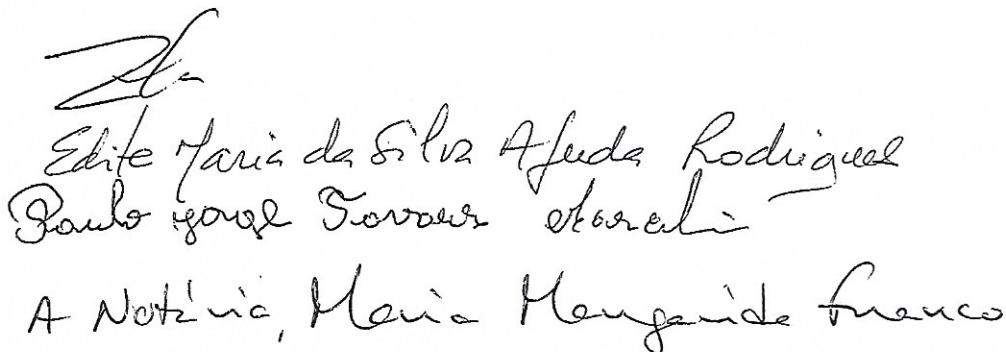 Edite Maria da Silva Ajuda Rodrigues
Paulo Jorge Tavares
A Notária, Maria Margarida Franco